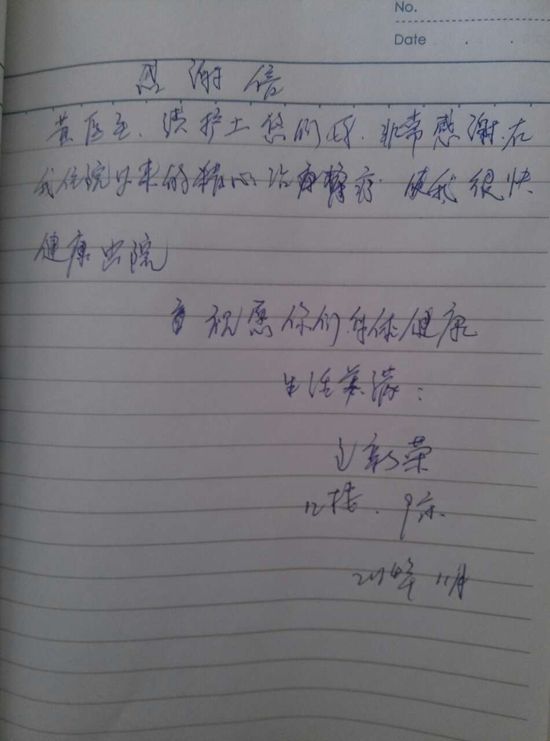 No.
Date
感谢信
黄医生、护士您们好、非常感谢在
我住院以来的精心治疗 使我很快
健康出院
祝愿你们身体健康
生活美满:
新荣
12楼、9床
11月